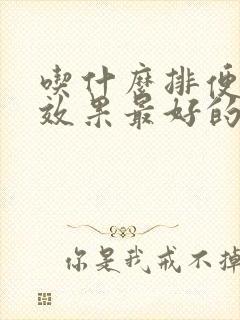 喫什麼排便
效果最好的
你是我戒不掉